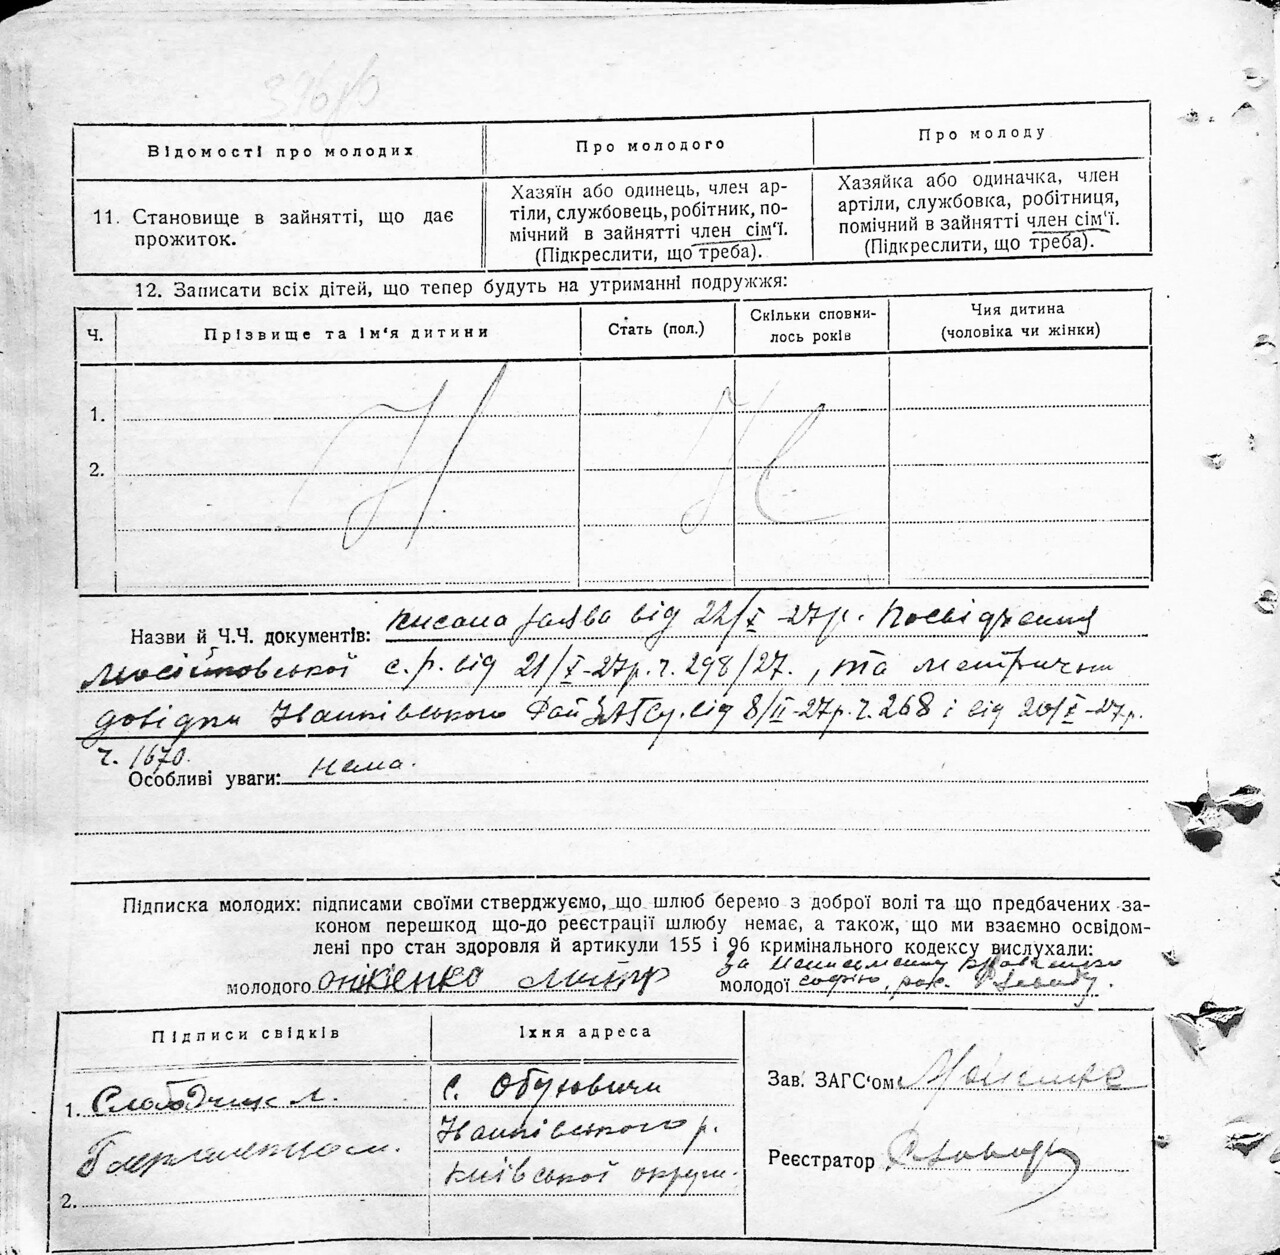 Відомості про молодих
Про молодого
Про молоду
11. Становище в зайнятті, що дає
прожиток.
Хазяїн або одинець, член ар-
тіли, службовець, робітник, по-
мічний в зайнятті член сім'ї.
(Підкреслити, що треба).
Хазяйка або одиначка, член
артіли, службовка, робітниця,
помічний в зайнятті член сім'ї.
(Підкреслити, що треба).
12. Записати всіх дітей, що тепер будуть на утриманні подружжя:
Ч.
Прізвище та ім'я дитини
Стать (пол.)
Скільки сповни-
лось років
Чия дитина
(чоловіка чи жінки)
1.
2.
Назви й Ч.Ч. документів: писана заява від 22/X-27р. Посвідчення
с.р. від 21/X-27р. ч. 298/27., та метричні
довідки Іванківського РайЗАГСу від 8/II-27р. ч. 268 і від 20/X-27р.
ч. 1670.
Особливі уваги: нема.
Підписка молодих: підписами своїми стверджуємо, що шлюб беремо з доброї волі та що предбачених за-
коном перешкод що-до реєстрації шлюбу немає, а також, що ми взаємно освідом-
лені про стан здоров'я й артикули 155 і 96 кримінального кодексу вислухали:
молодого Онікієнко
молодої за неписьменну
софію,
Підписи свідків
Їхня адреса
1. Слободчик Л.
с. Обуховичи
Іванківського р.
Київської округи.
2.
Зав. ЗАГС'ом
Реєстратор